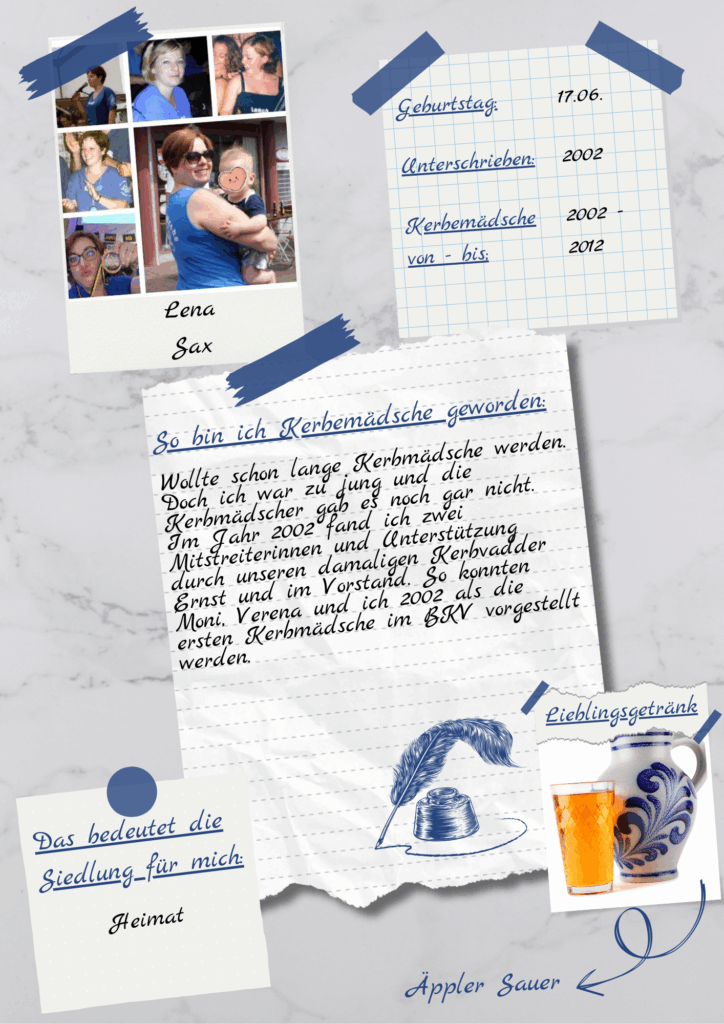 Lena
Sax
Geburtstag: 17.06.
Unterschrieben: 2002
Kerbemädsche 2002 -
von - bis: 2012
So bin ich Kerbemädsche geworden:
Wollte schon lange Kerbmädsche werden.
Doch ich war zu jung und die
Kerbmädscher gab es noch gar nicht.
Im Jahr 2002 fand ich zwei
Mitstreiterinnen und Unterstützung
durch unseren damaligen Kerbvadder
Ernst und im Vorstand. So konnten
Moni, Verena und ich 2002 als die
ersten Kerbmädsche im BKV vorgestellt
werden.
Lieblingsgetränk
Äppler Sauer
Das bedeutet die
Siedlung für mich:
Heimat